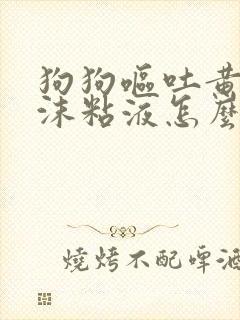 狗狗嘔吐黃
沫粘液怎麼
燒烤不配啤酒